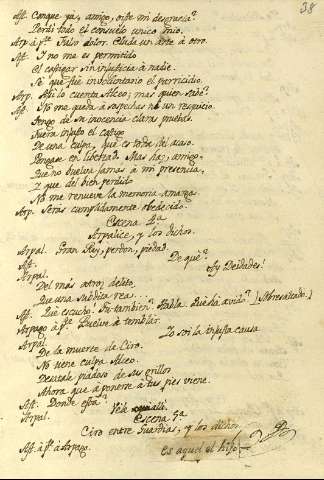 38
Ast. Conque ya, amigo, oiste mi desgracia?
Perdi todo el consuelo unico mio.
Arp. á pte. Falso dolor. Eluda un arte á otro.
Ast. Y no me es permitido
El castigar sin injusticia á nadie.
Sé que fue involuntario el parricidio.
Arp. Asi lo cuenta Alceo; mas quien sabe?
Ast. No me queda á sospechas ni un resquicio.
Tengo de su inocencia claras pruebas.
Fuera injusto el castigo
De una culpa, que es toda del acaso.
Pongase en libertad. Mas haz, amigo,
Que no buelva jamas á mi presencia,
Y que del bien perdido
No me renueve la memoria amarga.
Arp. Serás cumplidamente obedecido.
Escena 4ª
Arpalice, y los dichos.
Arpal. Gran Rey, perdon, piedad.
Ast. De qué?
Arpal. Ay Deidades!
Del mas atroz delito,
Que una subdita rea...
Ast. Qué escucho! Tu tambien? Habla. Qué há avido? [Sobresaltado.]
Arpago á pte. Buelve á temblar.
Arpal. Yo soi la injusta causa
De la muerte de Ciro.
No tiene culpa Alceo.
Desatale piadoso de sus grillos
Ahora que á ponerse á tus pies viene.
Ast. Donde está?
Arpal. Vele
Escena 5ª
Ciro entre Guardias, y los dichos.
Ast. á pte. á Arpago. Es aquel el hijo